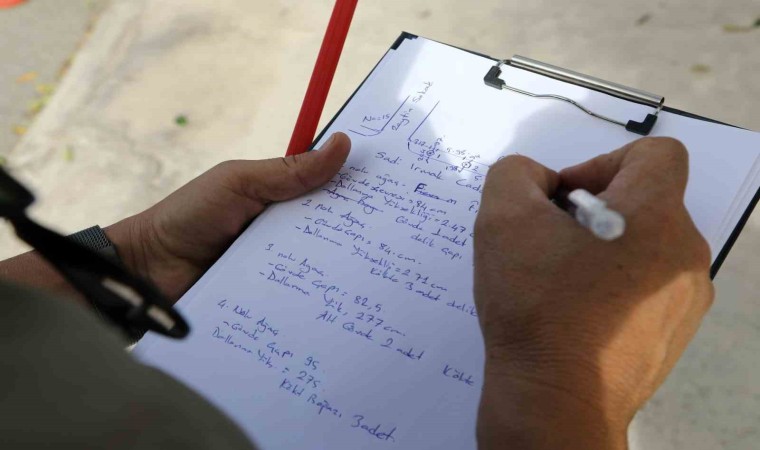 No: 15
Zeytin Sokak
Sadi Irmak Cad
nolu ağaç.
- Gövde çevresi = 84 cm
- Dallanma Yüksekliği = 2.47
Gövde 1 adet
delik çapı
2. nolu Ağaç
- Gövde Çapı = 84 cm.
- Dallanma Yüksekliği = 271 cm
Kökte 3 adet delik
3. nolu Ağaç
- Gövde Çapı = 82,5
- Dallanma Yük. 277 cm.
Alt Gövde 2 adet
Kökte
4. Nolu Ağaç
- Gövde Çapı 95
Dallanma Yük. = 275
Kök Boğazı 3 adet.